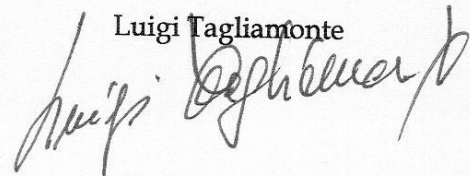 Luigi Tagliamonte
Luigi Tagliamonte